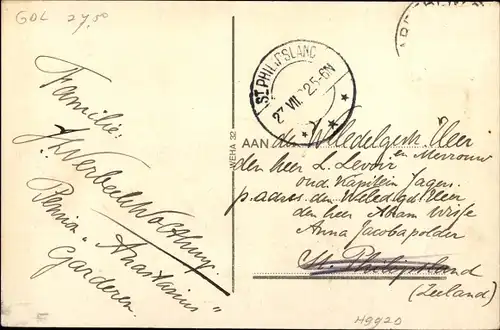 GDL 27,50
Familie.
J. Verbeek Wolthuys
Pension "Anastasius"
Garderen
WEHA 32
ST. PHILIPSLAND
27 VII 32 5-6N
AAN den Weledelgestr. Heer
en Mevrouw
den heer L. Levoir
oud. Kapitein Jagers.
p. adres. den Weled. gestr. Heer
den heer Abram Wisse
Anna Jacobapolder
St. Philipsland
(Zeeland)
H9920